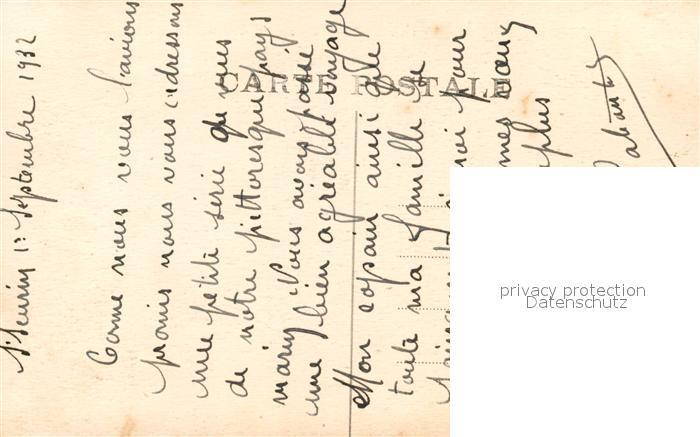 St Seurin 1er Septembre 1932
Comme nous vous l'avions
promis nous vous adressons
une petite série de vues
de notre pittoresque pays
mary Vous avons passé
une bien agréable voyage
Mon copain ainsi que
toute ma famille se
pour
mes
plus
CARTE POSTALE
privacy protection
Datenschutz